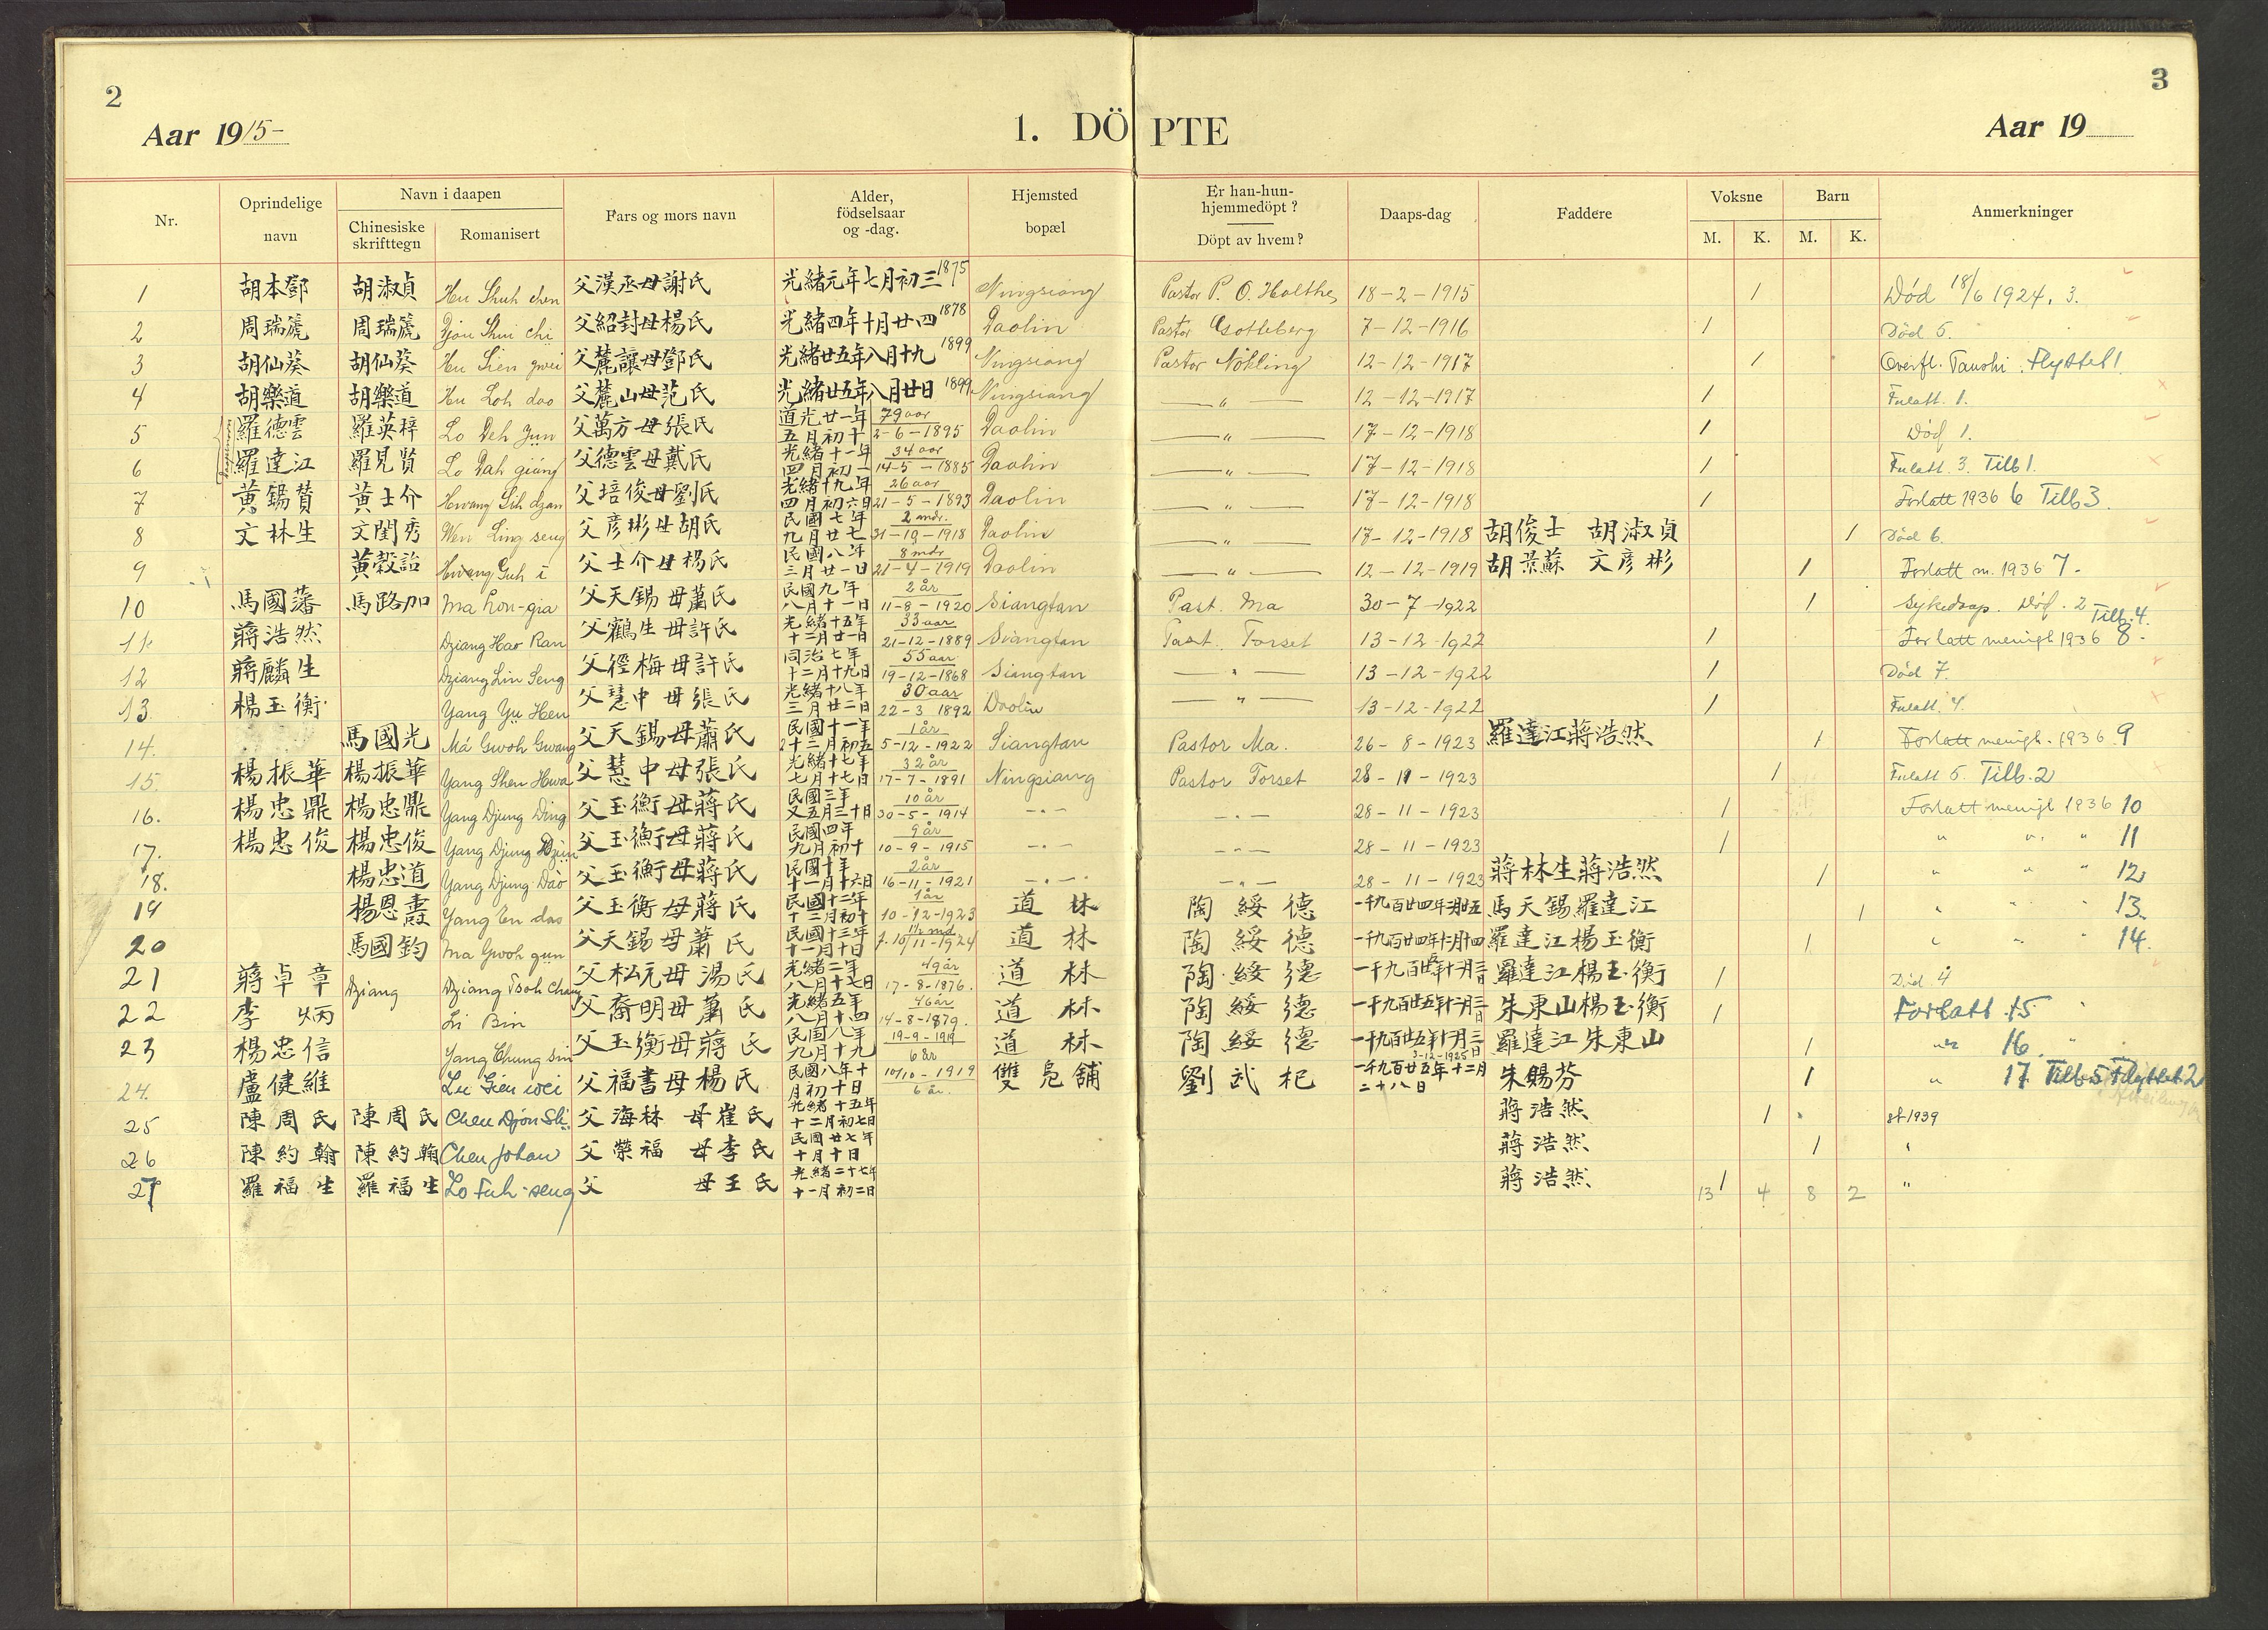 2
3
Aar 1915-
1. DÖPTE
Aar 19
Nr.
Oprindelige navn
Navn i daapen
Chinesiske skrifttegn
Romanisert
Fars og mors navn
Alder, födselsaar og -dag.
Hjemsted bopæl
Er han-hun-hjemmedöpt?
Döpt av hvem?
Daaps-dag
Faddere
Voksne
M. K.
Barn
M. K.
Anmerkninger
1 胡本鄧 胡淑貞 Hu Shuh chen 父漢丞母謝氏 光緒元年七月初三 1875 Ningsiang Pastor P. O. Holthe 18-2-1915 1 Död 18/6 1924. 3.
2 周瑞篪 周瑞篪 Djou Shui chi 父紹封母楊氏 光緒四年十月廿四 1878 Daolin Pastor Gotteberg 7-12-1916 1 Död 5.
3 胡仙葵 胡仙葵 Hu Sien gwei 父麓讓母鄧氏 光緒廿五年八月十九 1899 Ningsiang Pastor Nökling 12-12-1917 1 Overfl. Taushi. Flyttet 1
4 胡樂道 胡樂道 Hu Loh dao 父麓山母范氏 光緒廿五年八月廿日 1899 Ningsiang —"— 12-12-1917 1 Fulatt. 1.
5 羅德雲 羅英梓 Lo Deh Yün 父萬方母張氏 道光廿一年五月初十 79 aar 2-6-1895 Daolin —"— 17-12-1918 1 Död 1.
6 羅達江 羅見賢 Lo Dah giang 父德雲母戴氏 光緒十一年四月初一 34 aar 14-5-1885 Daolin —"— 17-12-1918 1 Fulatt. 3. Tilb 1.
7 黃錫贊 黃士介 Hwang Sih dzan 父培俊母劉氏 光緒十九年四月初六日 26 aar 21-5-1893 Daolin —"— 17-12-1918 1 Forlatt 1936 6 Tilb 3.
8 文林生 文閏秀 Wen Ling seng 父彥彬母胡氏 民國七年九月廿七 2 mdr. 31-10-1918 Daolin —"— 17-12-1918 胡俊士 胡淑貞 1 Död 6.
9 黃穀詒 Hwang Guh i 父士介母楊氏 民國八年三月廿一日 8 mdr 21-4-1919 Daolin —"— 12-12-1919 胡景蘇 文彥彬 1 Forlatt m. 1936 7.
10 馬國藩 馬路加 Ma Lou-gia 父天錫母蕭氏 民國九年八月十一日 2 år 11-8-1920 Siangtan Past. Ma 30-7-1922 1 Sykedaap. Död. 2
11 蔣浩然 Dziang Hao Ran 父鶴生母許氏 光緒十五年十二月廿一日 33 aar 21-12-1889 Siangtan Past. Forset 13-12-1922 1 Tilb. 4. Forlatt menigh 1936 8.
12 蔣麟生 Dziang Lin Seng 父徑梅母許氏 同治七年十二月十九日 55 aar 19-12-1868 Siangtan —"— 13-12-1922 1 Död 7.
13 楊玉衡 Yang Yu Hen 父慧中母張氏 光緒十八年三月廿二日 30 aar 22-3 1892 Daolin —"— 13-12-1922 1 Fulatt. 4.
14. 馬國光 Má Gwoh Gwang 父天錫母蕭氏 民國十一年十二月初五 1 år 5-12-1922 Siangtan Pastor Ma. 26-8-1923 羅達江蔣浩然 1 Forlatt menigh. 1936. 9
15. 楊振華 楊振華 Yang Shen Hwa 父慧中母張氏 光緒十七年七月十七日 32 år 17-7-1891 Ningsiang Pastor Forset 28-11-1923 1 Fulatt 5. Tilb. 2
16. 楊忠鼎 楊忠鼎 Yang Djung Ding 父玉衡母蔣氏 民國三年又五月三十日 10 år 30-5-1914 —"— —"— 28-11-1923 1 Forlatt menigh 1936 10
17. 楊忠俊 楊忠俊 Yang Djung Dzün 父玉衡母蔣氏 民國四年九月初十 9 år 10-9-1915 —"— —"— 28-11-1923 1 " " " 11
18. 楊忠道 Yang Djung Dao 父玉衡母蔣氏 民國十年十一月十六日 2 år 16-11-1921 —"— —"— 28-11-1923 蔣林生蔣浩然 1 " " " 12
19 楊恩燾 Yang En dao 父玉衡母蔣氏 民國十二年十二月初十 1 år 10-12-1923 道林 陶綏德 馬天錫羅達江 1 " " " 13.
20 馬國鈞 Ma Gwoh gün 父天錫母蕭氏 民國十三年十一月十日 10/11-1924 道林 陶綏德 羅達江楊玉衡 1 " " " 14.
21 蔣卓章 Dziang Dziang Tsoh Chang 父松元母湯氏 光緒二年八月十七日 49 år 17-8-1876. 道林 陶綏德 羅達江楊玉衡 1 Död 4
22 李炳 Li Bin 父裔明母蕭氏 光緒五年八月十四 46 år 14-8-1879. 道林 陶綏德 朱東山楊玉衡 1 Forlatt 15 "
23 楊忠信 Yang Chung sin 父玉衡母蔣氏 民国八年九月十九 19-9-1919 6 år 道林 陶綏德 一千九百廿五年十二月三日 3-12-1925 羅達江朱東山 1 " 16 "
24. 盧健維 Lu Gien wei 父福書母楊氏 民國八年十月初十日 10/10-1919 6 år. 雙凫舖 劉武杞 一千九百廿五年十二月二十八日 朱賜芬 1 " 17 Tilb 5 Flyttet 2
25 陳周氏 陳周氏 Chen Djou Shi 父海林 母崔氏 光緒十五年十二月初七日 蔣浩然 1 st 1939
26 陳約翰 陳約翰 Chen Johan 父榮福 母李氏 民國廿七年十月十日 蔣浩然 1 "
27 羅福生 羅福生 Lo Fuh-seng 父 母王氏 光緒二十七年十一月初二日 蔣浩然 1 "
13 4 8 2